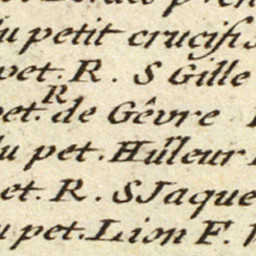 u petit crucifi
pet. R. S Gille
pet. R de Gêvre
u pet. Hüleur
et. R. S Jaque
u pet. Lion F.